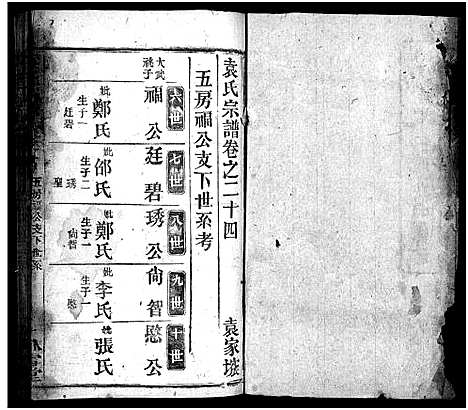 袁氏宗譜卷之二十四
袁家墩
五房福公支下世系考
六世
七世
八世
九世
十世
福公
廷碧
琇公
尙智
愍公
妣鄭氏
生子一
廷碧
妣邰氏
生子二
琇
妣鄭氏
生子一
尙智
妣李氏
生子一
愍
妣張氏
五房福公支下世系